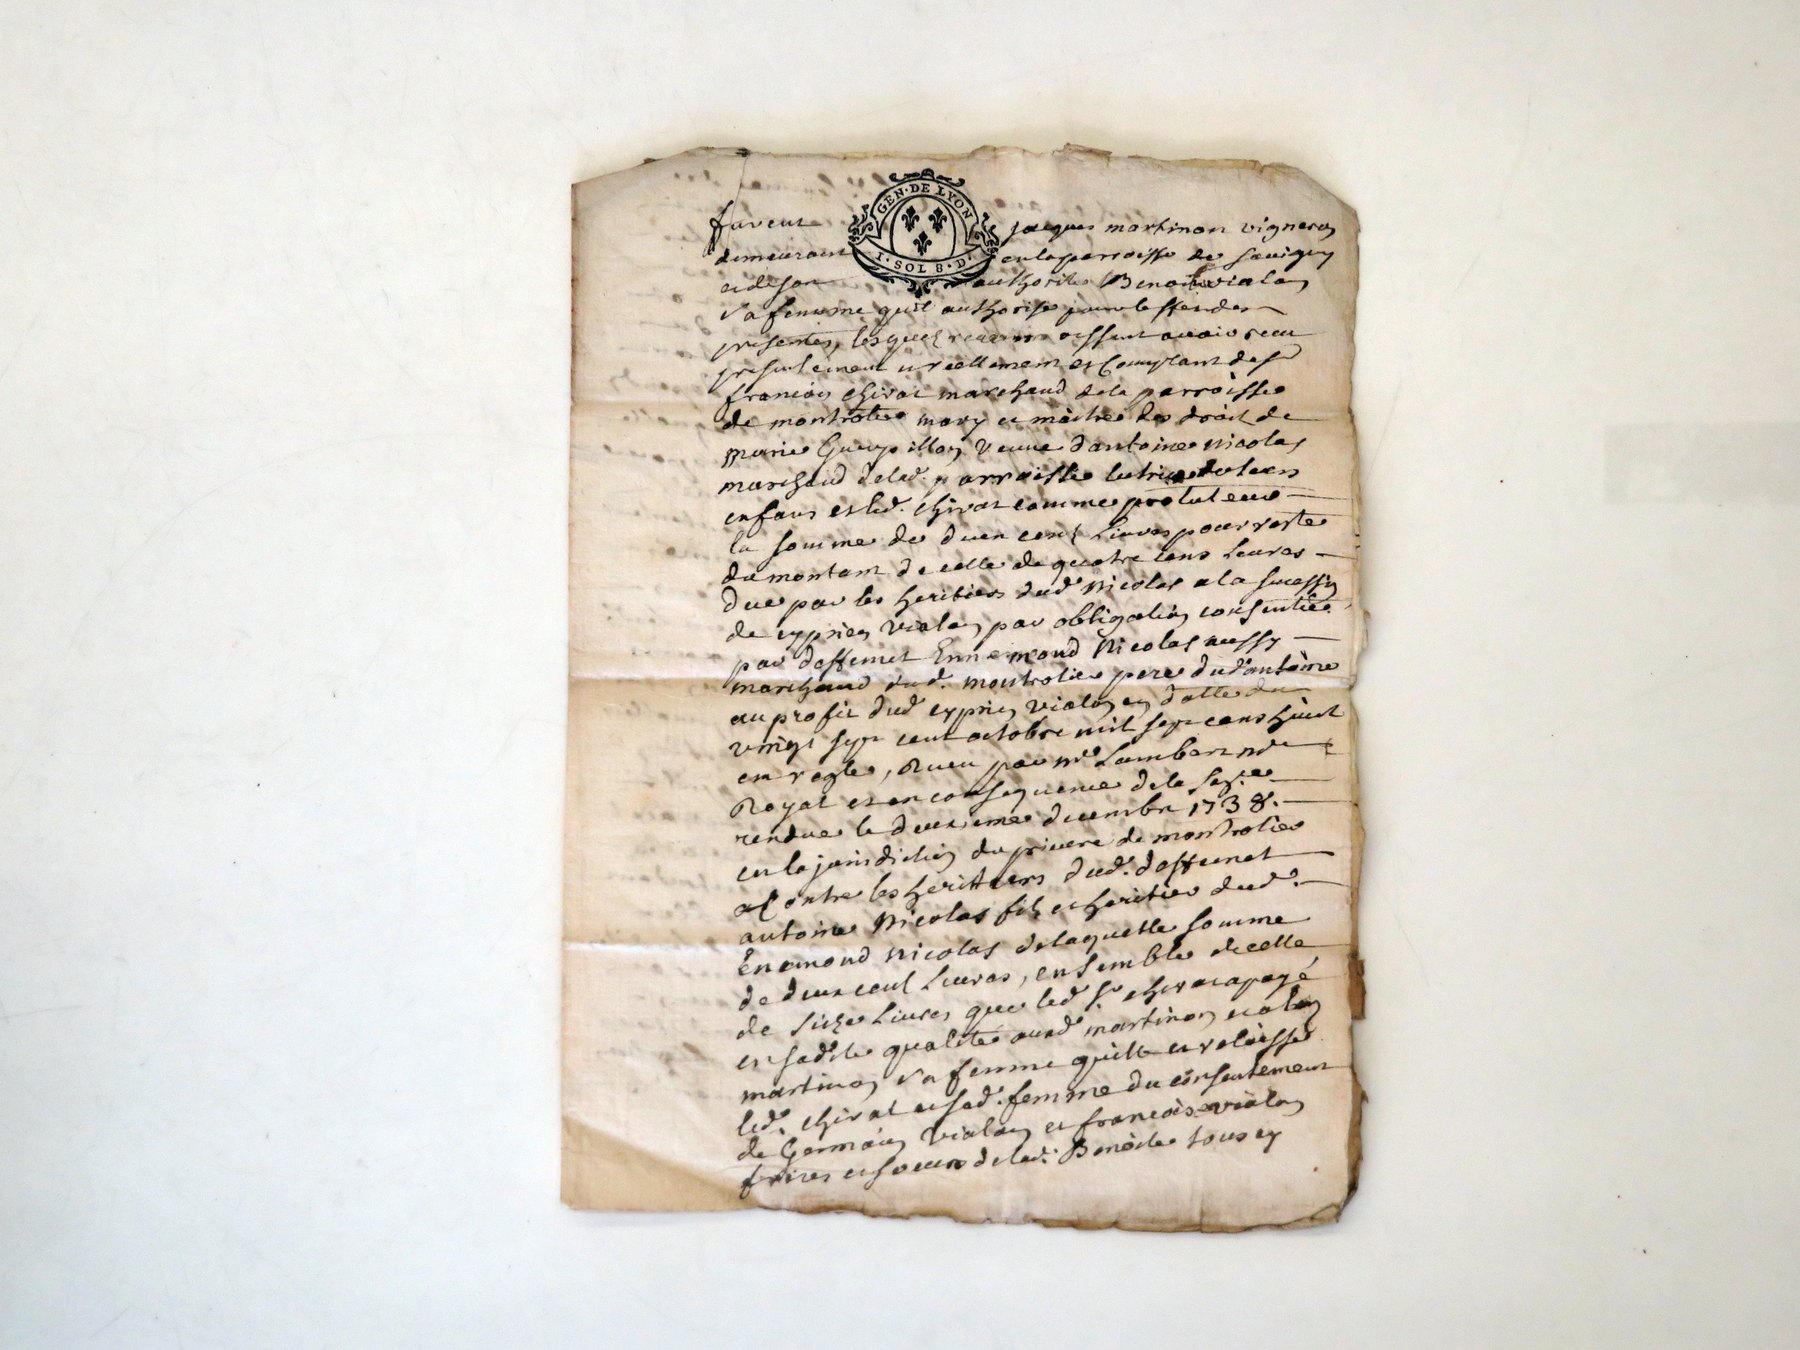 GEN·DE LYON
I·SOL 8·D·
furent jacques martinon vigneron
demeurant en la parroisse de savigny
et de son authorité Benoite vialon
sa femme quil authorise pour leffet des
presentes, lesquels reconnoissent avoir receu
presentement et reellement et Comptant de sr
francois chirat marchand de la parroisse
de montrotier mary et maitre des droit de
marie Guerpillon veuve dantoine nicolas
marchand de lad. parroisse tutrice de leurs
enfans et led. chirat comme protuteur
la somme de deux cent Livres pour reste
du montant de celle de quatre cens Livres
due par les heritiers dud. nicolas a la sucession
de cyprien vialon par obligation consentie
par deffunct Ennemond nicolas aussy
marchand dud. montrotier pere dud. antoine
au profit dud. cyprien vialon en datte du
vingt sept octobre mil sept cens huict
en regle, Receu par me Lambert nre
Royal et en consequence de la sece
rendue le deuxieme decembre 1738.
en la jurisdiction du prieuré de montrotier
a Contre les heritiers dud. deffunct
antoine nicolas fils et heritier dud.
Enemond nicolas de laquelle somme
de deux cent Livres, ensemble de celle
de Livres que led. sr chirat a payé
en sadite qualité aud. martinon vialon
martinon sa femme quitte et
led. chirat et sad. femme du consentement
de Germain vialon et francoise vialon
freres et soeur de lad. Benoite